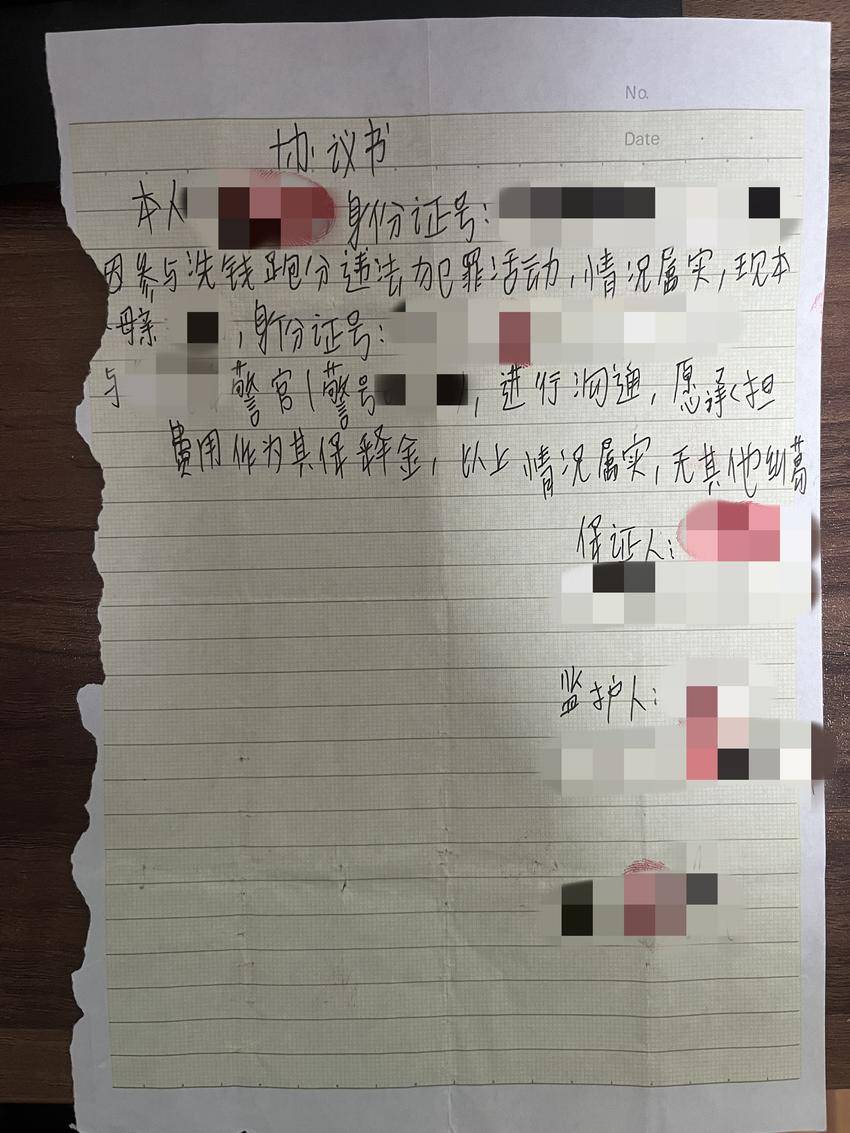 No.
Date
协议书
本人 身份证号:
因参与洗钱跑分违法犯罪活动,情况属实,现本
母亲 ,身份证号:
与 警官(警号 ),进行沟通,愿承担
费用作为其保释金,以上情况属实,无其他纠葛
保证人:
监护人: